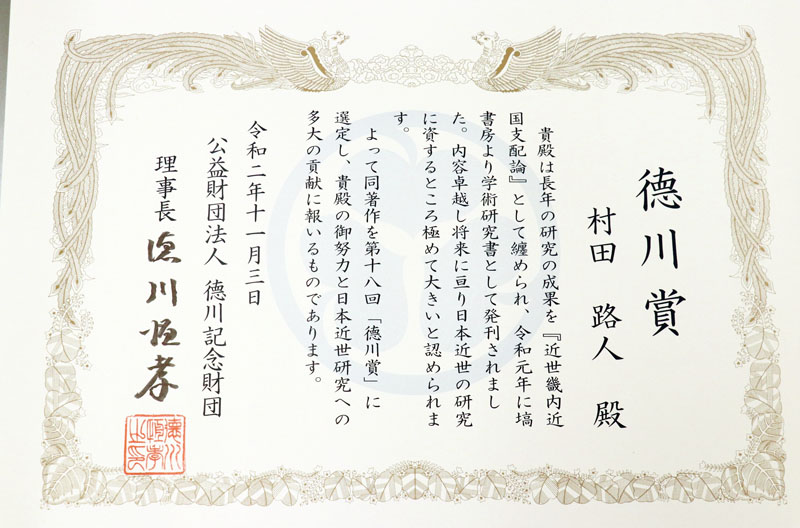 德川賞
村田 路人 殿
貴殿は長年の研究の成果を『近世畿内近
国支配論』として纏められ、令和元年に塙
書房より学術研究書として発刊されまし
た。内容卓越し将来に亘り日本近世の研究
に資するところ極めて大きいと認められま
す。
よって同著作を第十八回「徳川賞」に
選定し、貴殿の御努力と日本近世研究への
多大の貢献に報いるものであります。
令和二年十一月三日
公益財団法人 德川記念財団
理事長 德川恒孝
德川
恒孝
之印